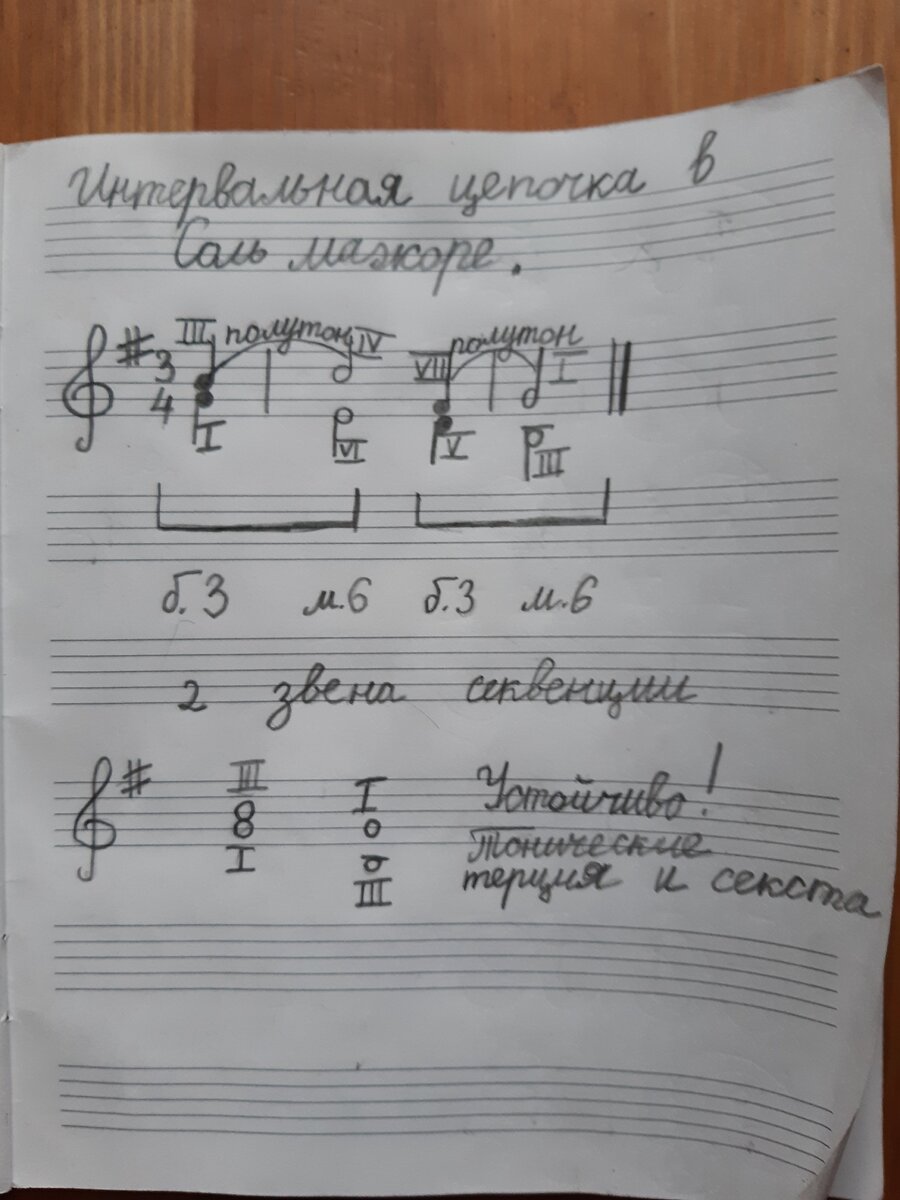 Интервальная цепочка в
Соль мажоре.
III полутон IV VII полутон I
3
4
I VI V III
б.3 м.6 б.3 м.6
2 звена секвенции
III I Устойчиво!
I Тонические
III терция и секста